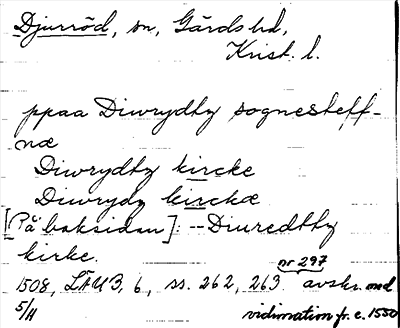 Djurröd, sn, Gärds hd,
Krist. l.
ppaa Diwrydtz sognesteff-
næ
Diwrydtz kircke
Diwrydz kirckæ
[På baksidan]: -- Diuredttz
kirke.
nr 297
1508, LÄUB, 6, ss. 262, 263. avskr. med
5/11
vidimation fr. c. 1550